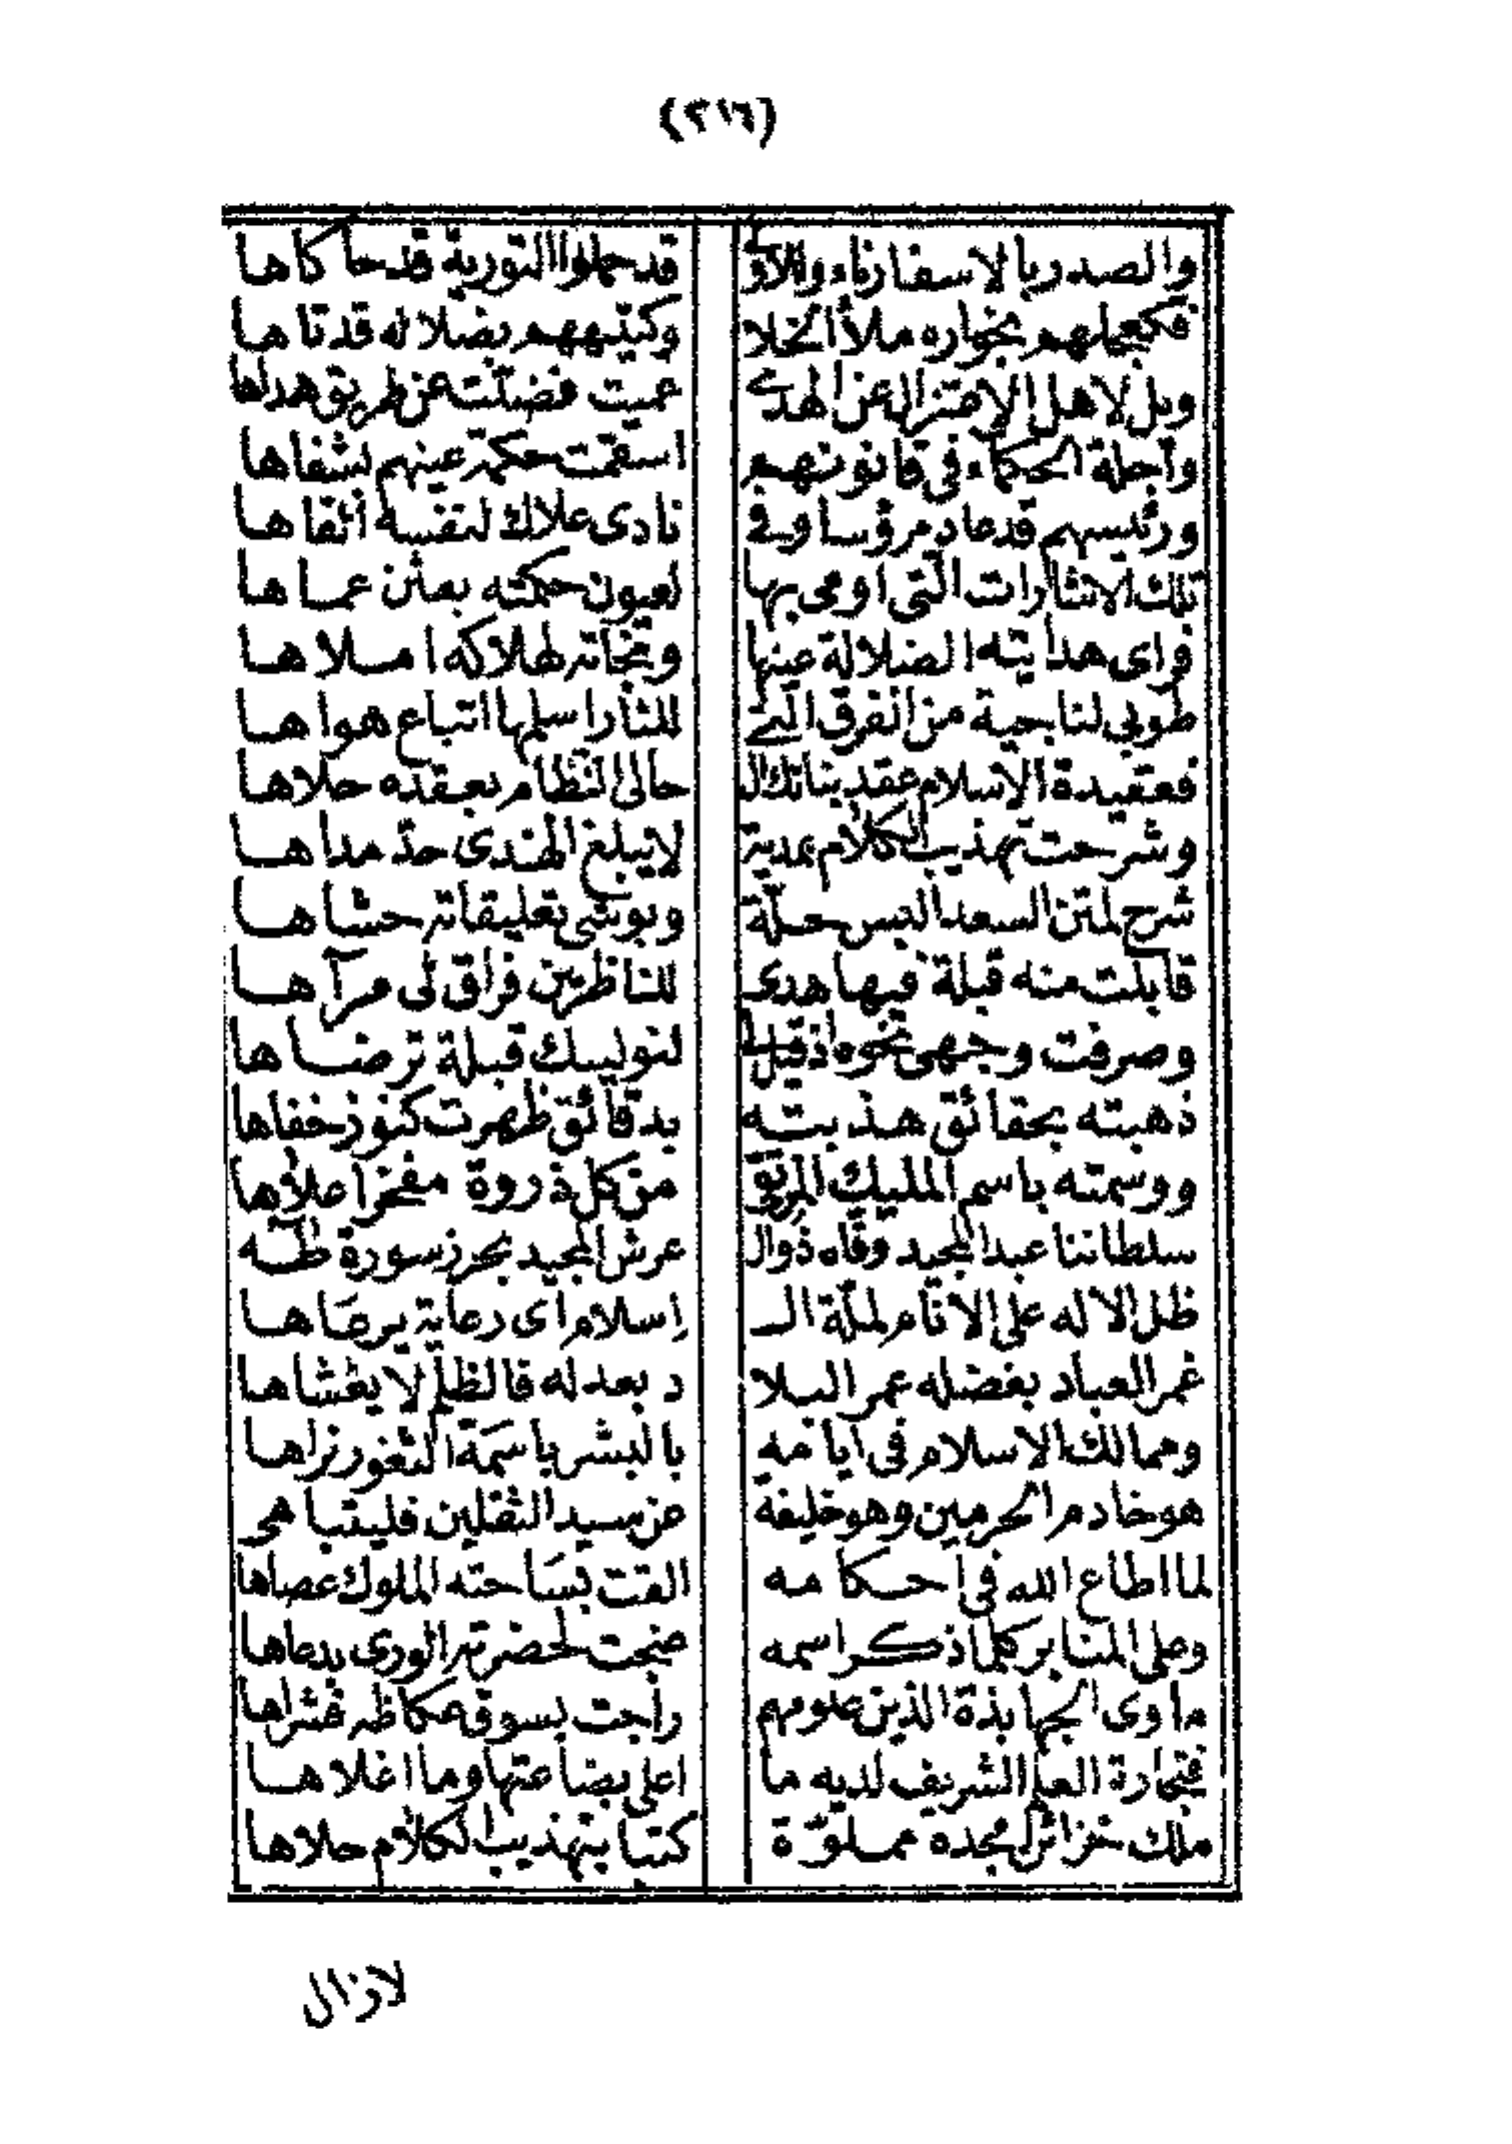 (٢١٦)
والصدر بالاسفار ناء والاؤلى قد حملوا التورية قد حاكاها
فكعجلهم بخواره ملأ الخلا وكتيههم بضلاله قد تاها
ويل لاهل الاعتزال عن الهدى عميت فضلت عن طريق هداها
واجلة الحكماء فى قانونهم استقمت حكمة عينهم لشفاها
ورئيسهم قد عاد مرؤسا وفى نادى علاك لنفسه أنفاها
تلك الاشارات التى اومى بها لعيون حكمته بعثن عماها
فراى هدايته الضلالة عينها ونجاته لهلاكه املاها
طوبى لناجية من الفرق التى للنار اسلمها اتباع هواها
فعقيدة الاسلام عقد بنانك ال حالى النظام بعقده حلاها
وشرحت تهذيب الكلام بمدية لا يبلغ الهندى حد مداها
شرح لمتن السعد البس حلة وبوشى تعليقاته حشاها
قابلت منه قبلة فيها هدى للناظرين فراق لى مرآها
وصرفت وجهى نحوه اذ قيل لى لنوليك قبلة ترضاها
ذهبته بحقائق هذبته بدقائق ظهرت كنوز خفاها
ووسمته باسم المليك المرتقى من كل ذروة مفخر اعلاها
سلطاننا عبد المجيد وقاه ذوال عرش المجيد بحرز سورة طه
ظل الاله على الانام لملة ال إسلام اى رعاية يرعاها
غمر العباد بفضله عمر البلا د بعدله فالظلم لا يغشاها
وممالك الاسلام فى ايامه بالبشر باسمة الثغور نراها
هو خادم الحرمين وهو خليفة من سيد الثقلين فليتباهى
لما اطاع الله فى احكامه القت بساحته الملوك عصاها
وعلى المنابر كلما ذكر اسمه ضجت لحضرته الورى بدعاها
ماوى الجهابذة الذين علومهم راجت بسوق عكاظه فشراها
فتجارة العلم الشريف لديه ما اعلى بضاعتها وما اغلاها
ملك خزائن مجده مملوّة كتبا بتهذيب الكلام حلاها
لازال